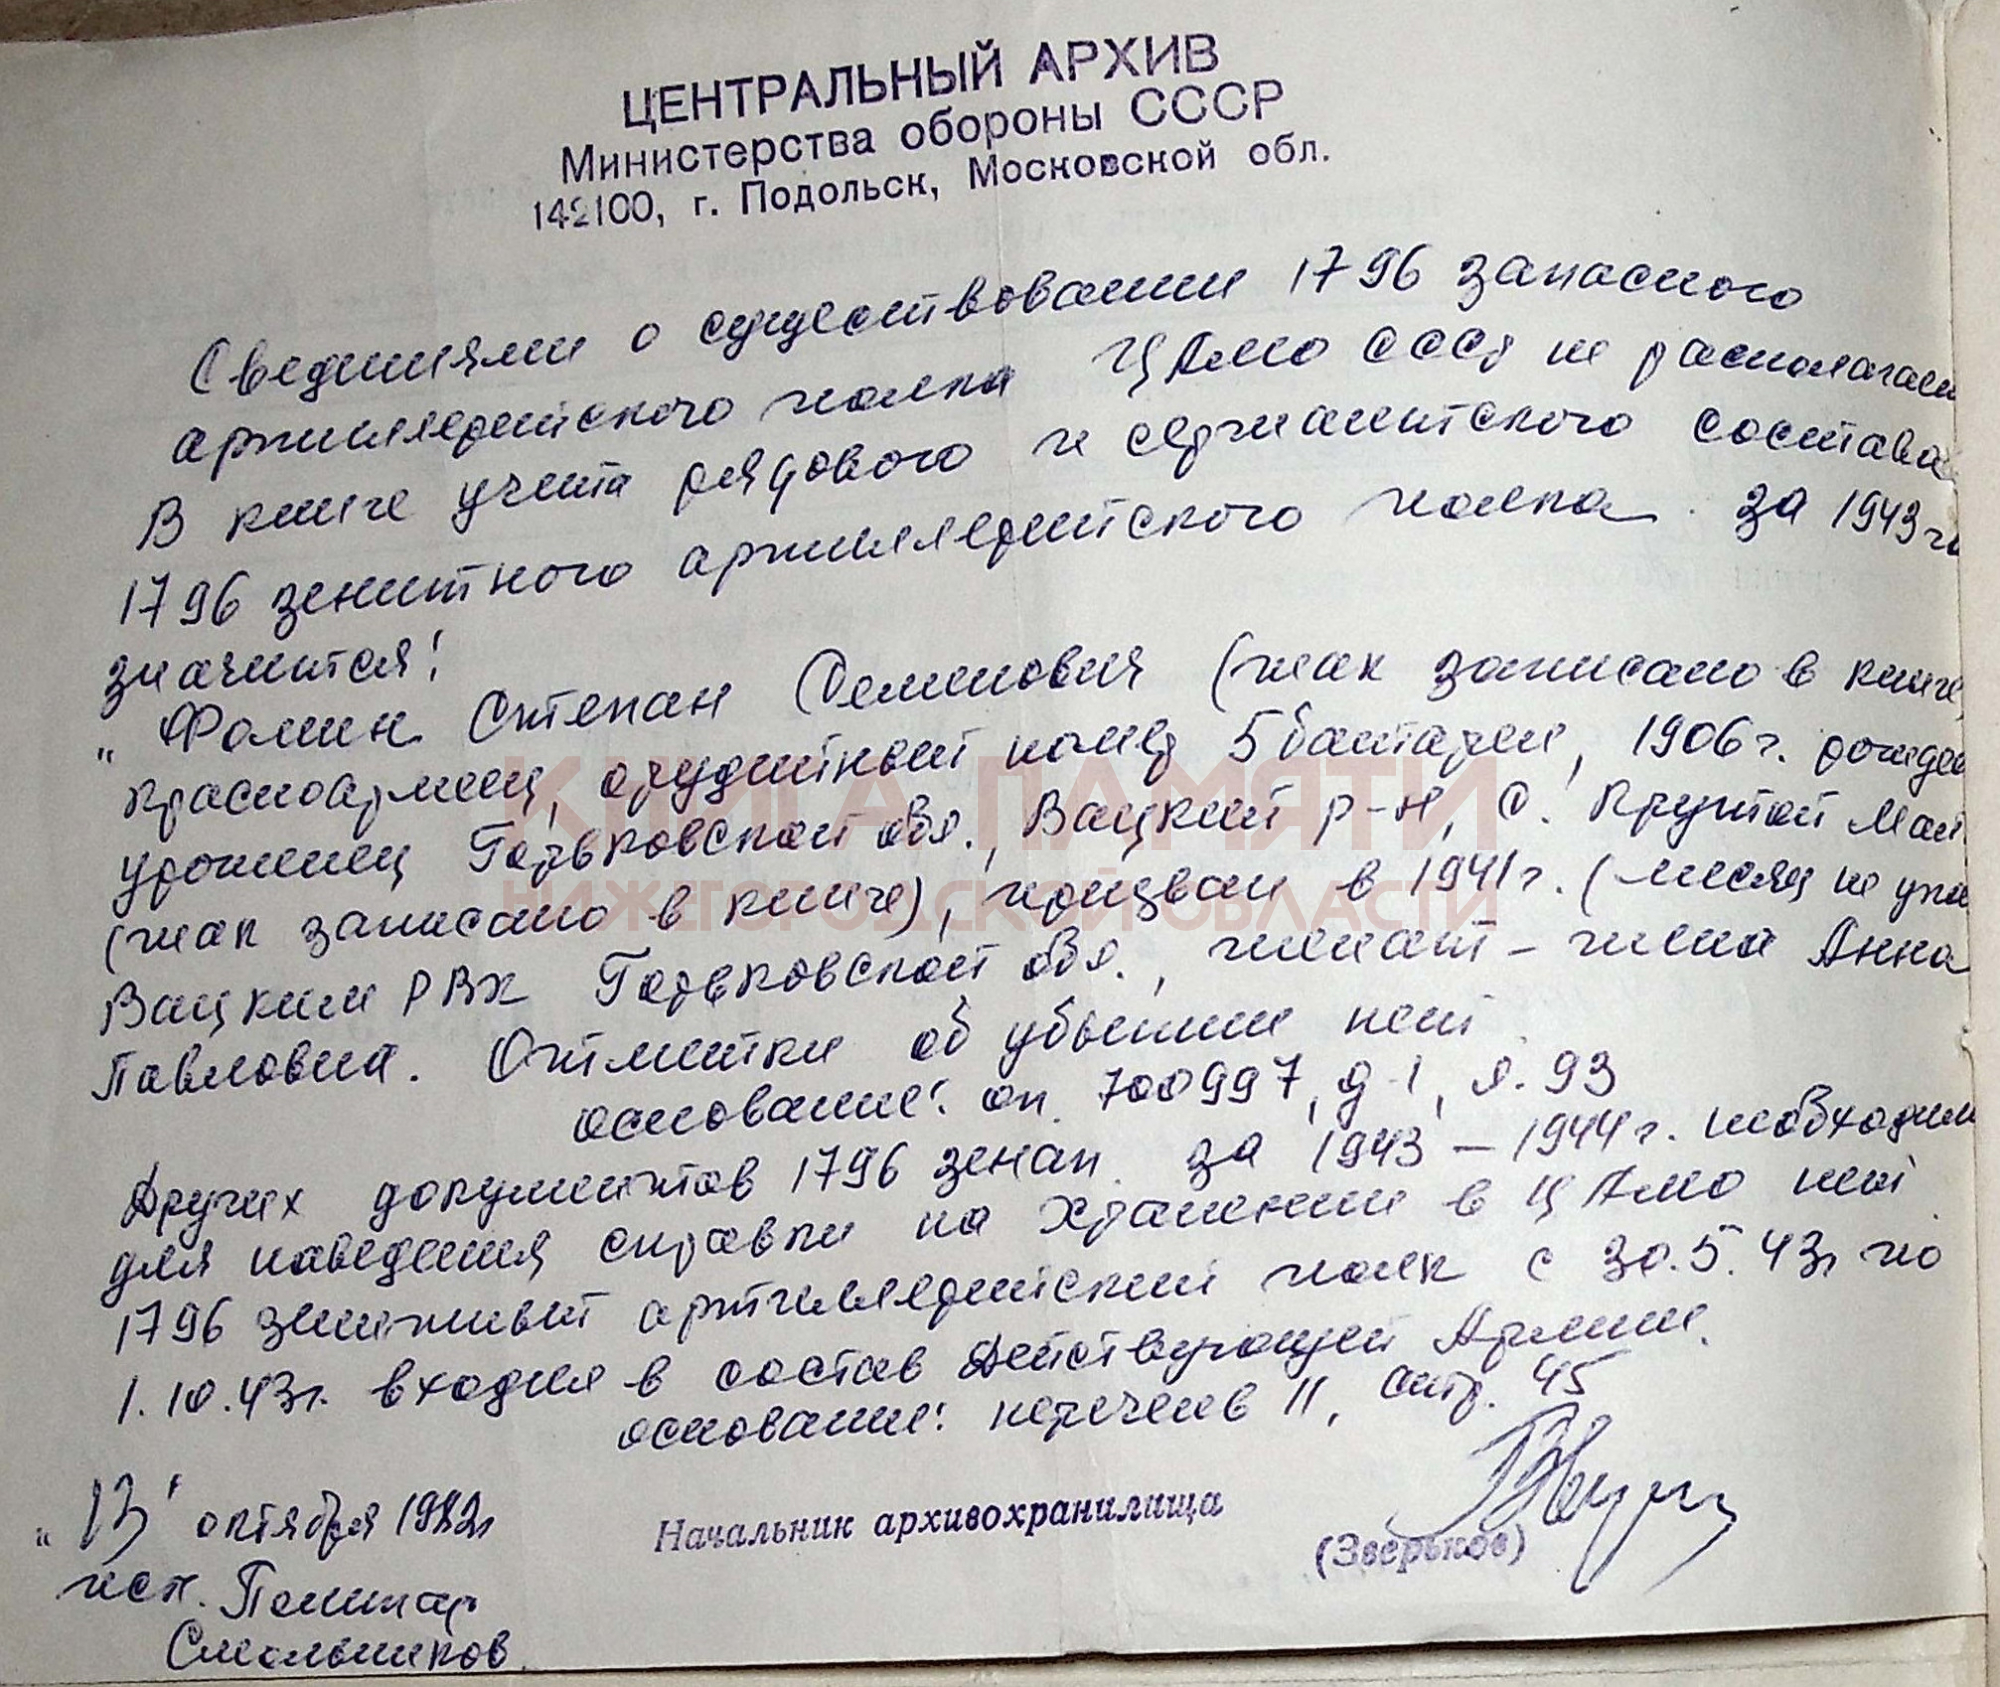 ЦЕНТРАЛЬНЫЙ АРХИВ
Министерства обороны СССР
142100, г. Подольск, Московской обл.
Сведениями о существовании 1796 запасного
артиллерийского полка ЦАМО СССР не располагает
В книге учета рядового и сержантского состава
1796 зенитного артиллерийского полка за 1943 г
значится:
„Фомин Степан Семенович (так записано в книге)
красноармеец, орудийный номер 5 батареи, 1906 г. рожден
уроженец Горьковской обл., Вацкий р-н, с. Крутой Май
(так записано в книге), призван в 1941 г. (месяц не ука
Вацким РВК Горьковской обл., женат - жена Анна
Павловна. Отметки об убытии нет.
основание: оп. 700997, д. 1, л. 93
Других документов 1796 зенап. за 1943 - 1944 г. необходим
для наведения справки на хранении в ЦАМО нет
1796 зенитный артиллерийский полк с 30.5.43г по
1.10.43г. входил в состав Действующей Армии.
основание: перечень 11, стр. 45
КНИГА ПАМЯТИ
НИЖЕГОРОДСКОЙ ОБЛАСТИ
„13" октября 1982г
Начальник архивохранилища
(Зверьков)
исп.
Смольников